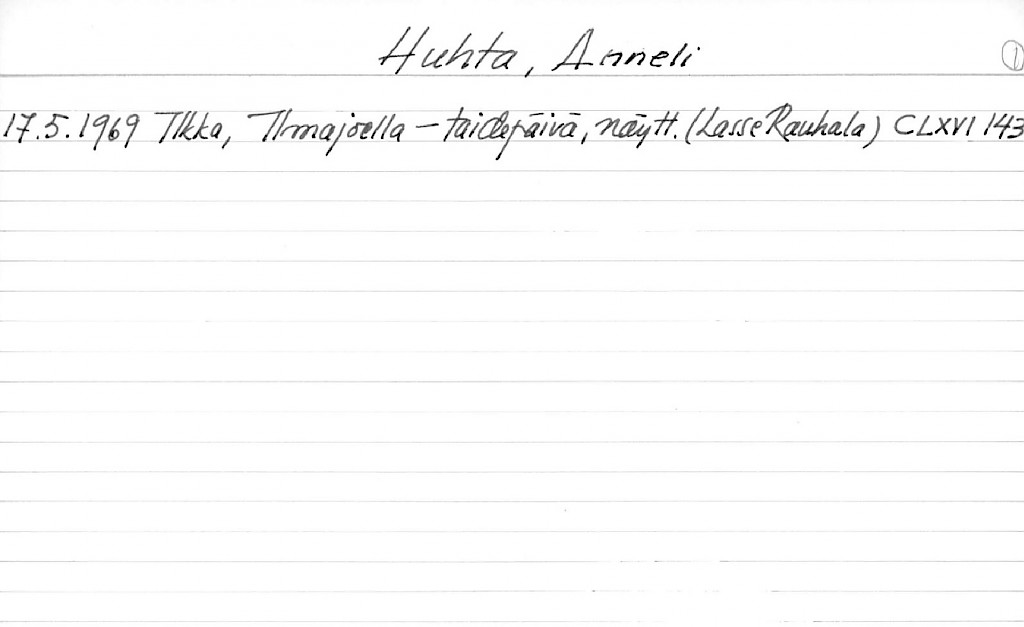 Huhta, Anneli 1
17.5.1969 Ilkka, Ilmajoella – taidepäivä, näytt. (Lasse Rauhala) CLXVI 143